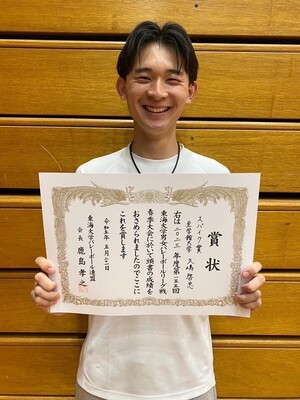 賞状
スパイク賞
至学館大学 久嶋啓志
右は二〇二三年度第一五五回
東海大学男女バレーボールリーグ戦
春季大会に於いて頭書の成績を
おさめられましたのでここに
これを賞します
令和五年五月二十一日
東海大学バレーボール連盟
会長 鹿島孝之